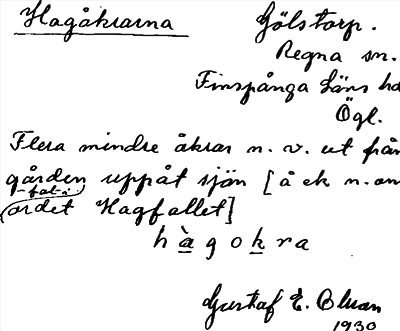 Hagåkrarna
Gölstorp.
Regna sn.
Finspånga läns hd
Ögl.
Flera mindre åkrar n. v. ut från
gården uppåt sjön [å ek n. om
-fal-i
ordet Hagfallet]
hàgokra
Gustaf E.
1930